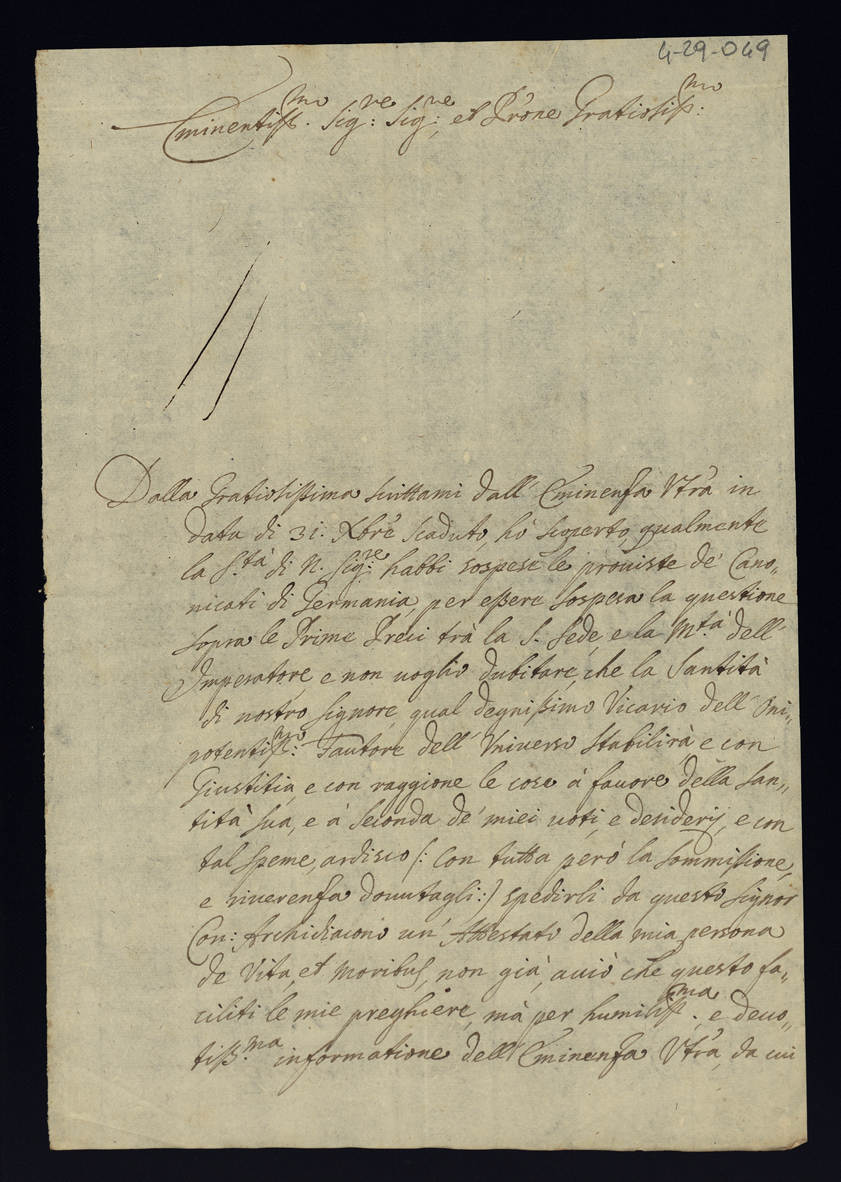 4-29-049
Eminentiss.mo Sig:re Sig:re, et P'rone Gratiosiss:mo
Dalla Gratiosissima scrittami dall' Eminenza V'tra in
data di 31. Xbre scaduto, hò scoperto, qualmente
la S.tà di N. Sig:re habbi sospese le proviste de' Cano,,
nicati di Germania, per essere sospesa la questione
sopra le Prime Preci trà la S. Sede, e la M.tà dell'
Imperatore, e non voglio dubitare, che la Santità
di nostro Signore, qual degnissimo Vicario dell' Oni,,
potentiss:mo Fautore dell' Universo stabilirà e con
Giustitia, e con raggione le cose à favore della San,,
tità sua, e à seconda de' miei voti, e desiderij, e con
tal speme, ardisco /: con tutta però la sommissione,
e riverenza dovutagli :/ spedirli da questo Signor
Con: Archidiacono un' Attestato della mia persona
de Vita, et moribus, non già, acciò che questo fa,,
ciliti le mie preghiere, mà per humiliss.ma, e devo,,
tiss.ma informatione dell' Eminenza V'tra, da cui